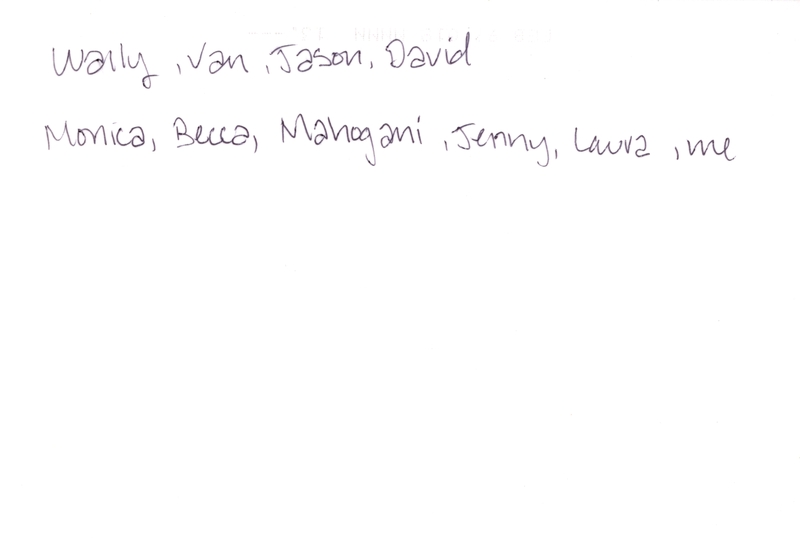 Wally, Van, Jason, David
Monica, Becca, Mahogani, Jenny, Laura, me